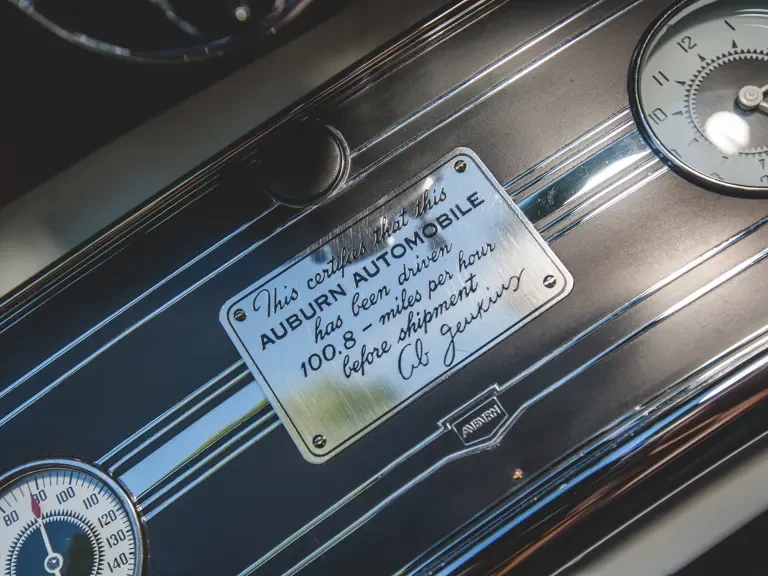 This certifies that this
AUBURN AUTOMOBILE
has been driven
100.8 - miles per hour
before shipment
Ab Jenkins
AUBURN
10
11
12
1
80
100
110
120
130
140